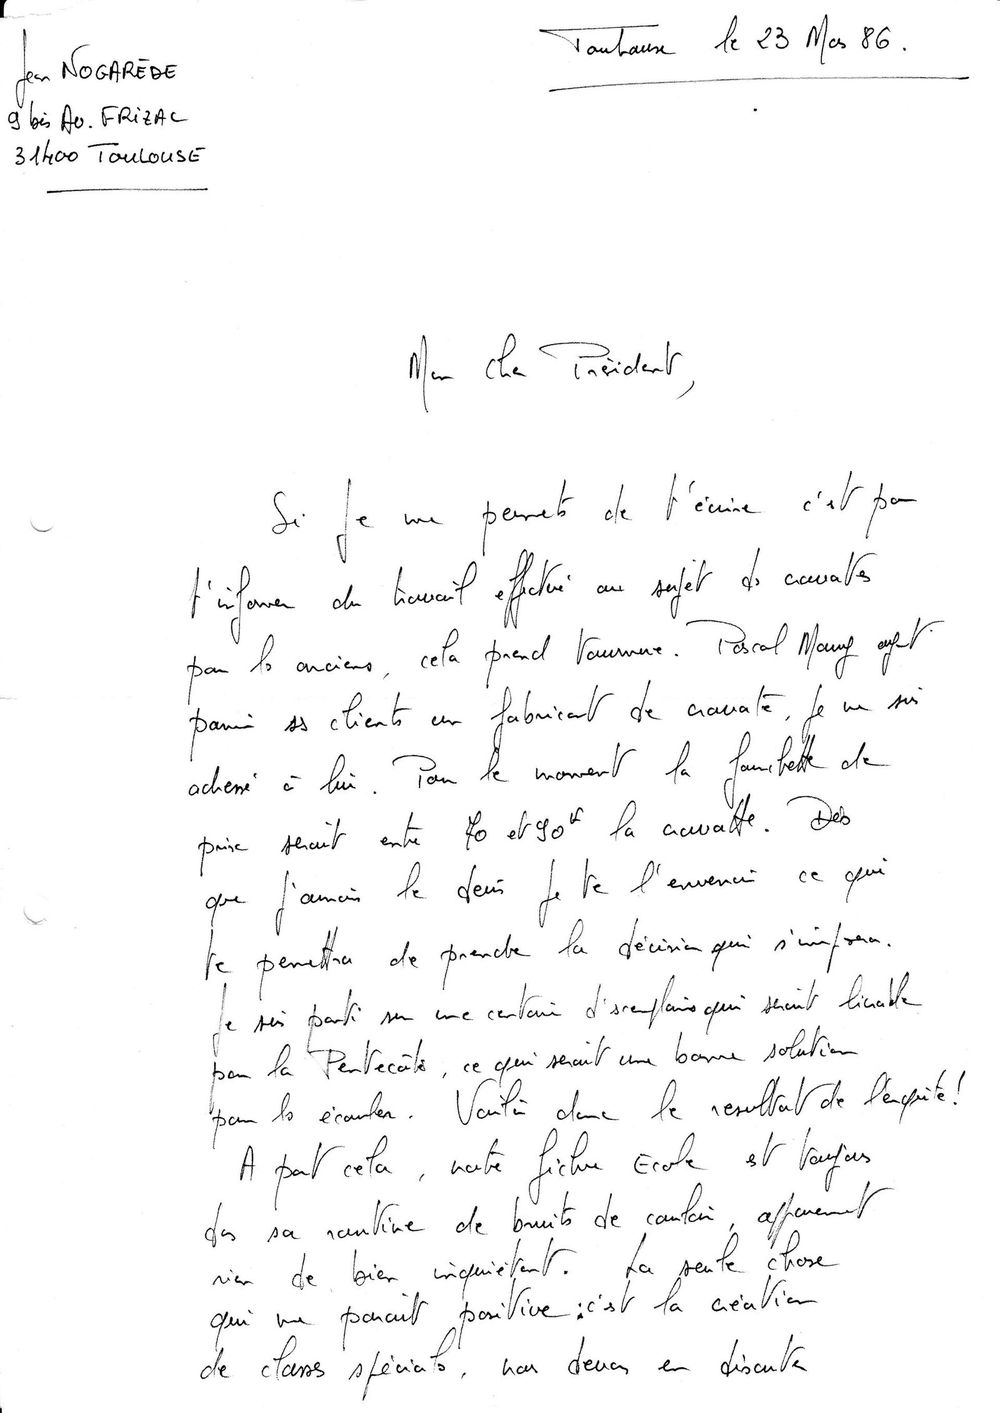 Jean NOGARÈDE
9 bis Av. FRIZAC
31400 TOULOUSE
Toulouse le 23 Mars 86.
Mon cher Président,
Si je me permets de t'écrire c'est pour
t'informer du travail effectué au sujet des cravates
pour les anciens, cela prend tournure. Pascal Mauny ayant
parmi ses clients un fabricant de cravate, je me suis
adressé à lui. Pour le moment la fourchette de
prix serait entre 70 et 90F la cravatte. Dès
que j'aurais le devis je te l'enverrai ce qui
te permettra de prendre la décision qui s'imposera.
Je suis parti sur une centaine d'exemplaires qui serait livrable
pour la Pentecôte, ce qui serait une bonne solution
pour les écouler. Voilà donc le resultat de l'enquête!
A part cela, notre fichue Ecole est toujours
dans sa routine de bruits de couloir, apparement
rien de bien inquiétant. La seule chose
qui me parait positive : c'est la création
de classes spéciales, nous devons en discuter